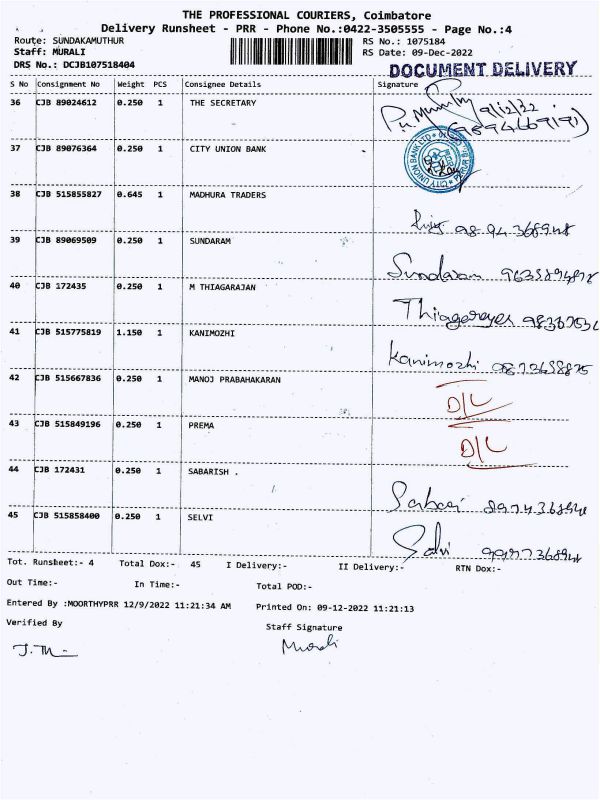 THE PROFESSIONAL COURIERS, Coimbatore
Delivery Runsheet - PRR - Phone No.:0422-3505555 - Page No.:4
Route: SUNDAKAMUTHUR RS No.: 1075184
Staff: MURALI RS Date: 09-Dec-2022
DRS No.: DCJB107518404 DOCUMENT DELIVERY
S No Consignment No Weight PCS Consignee Details Signature
36 CJB 89024612 0.250 1 THE SECRETARY 9/12/22
(9894669191)
37 CJB 89076364 0.250 1 CITY UNION BANK CITY UNION BANK LTD
38 CJB 515855827 0.645 1 MADHURA TRADERS
39 CJB 89069509 0.250 1 SUNDARAM Sundaram
40 CJB 172435 0.250 1 M THIAGARAJAN
41 CJB 515775819 1.150 1 KANIMOZHI Kanimozhi
42 CJB 515667836 0.250 1 MANOJ PRABAHAKARAN D/L
43 CJB 515849196 0.250 1 PREMA D/L
44 CJB 172431 0.250 1 SABARISH .
45 CJB 515858400 0.250 1 SELVI
Tot. Runsheet:- 4 Total Dox:- 45 I Delivery:- II Delivery:- RTN Dox:-
Out Time:- In Time:- Total POD:-
Entered By :MOORTHYPRR 12/9/2022 11:21:34 AM Printed On: 09-12-2022 11:21:13
Verified By Staff Signature
Murali